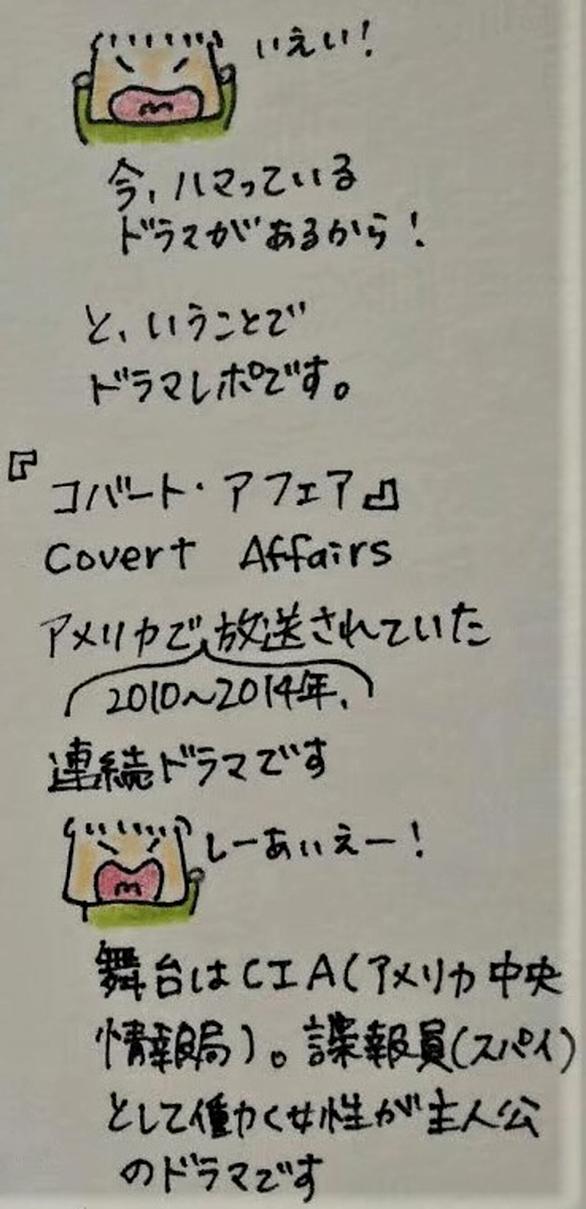 いえい!
今、ハマっている
ドラマがあるから!
と、いうことで
ドラマレポです。
『コバート・アフェア』
Covert Affairs
アメリカで放送されていた
2010~2014年、
連続ドラマです
しーあいえー!
舞台はCIA(アメリカ中央
情報局)。諜報員(スパイ)
として働く女性が主人公
のドラマです